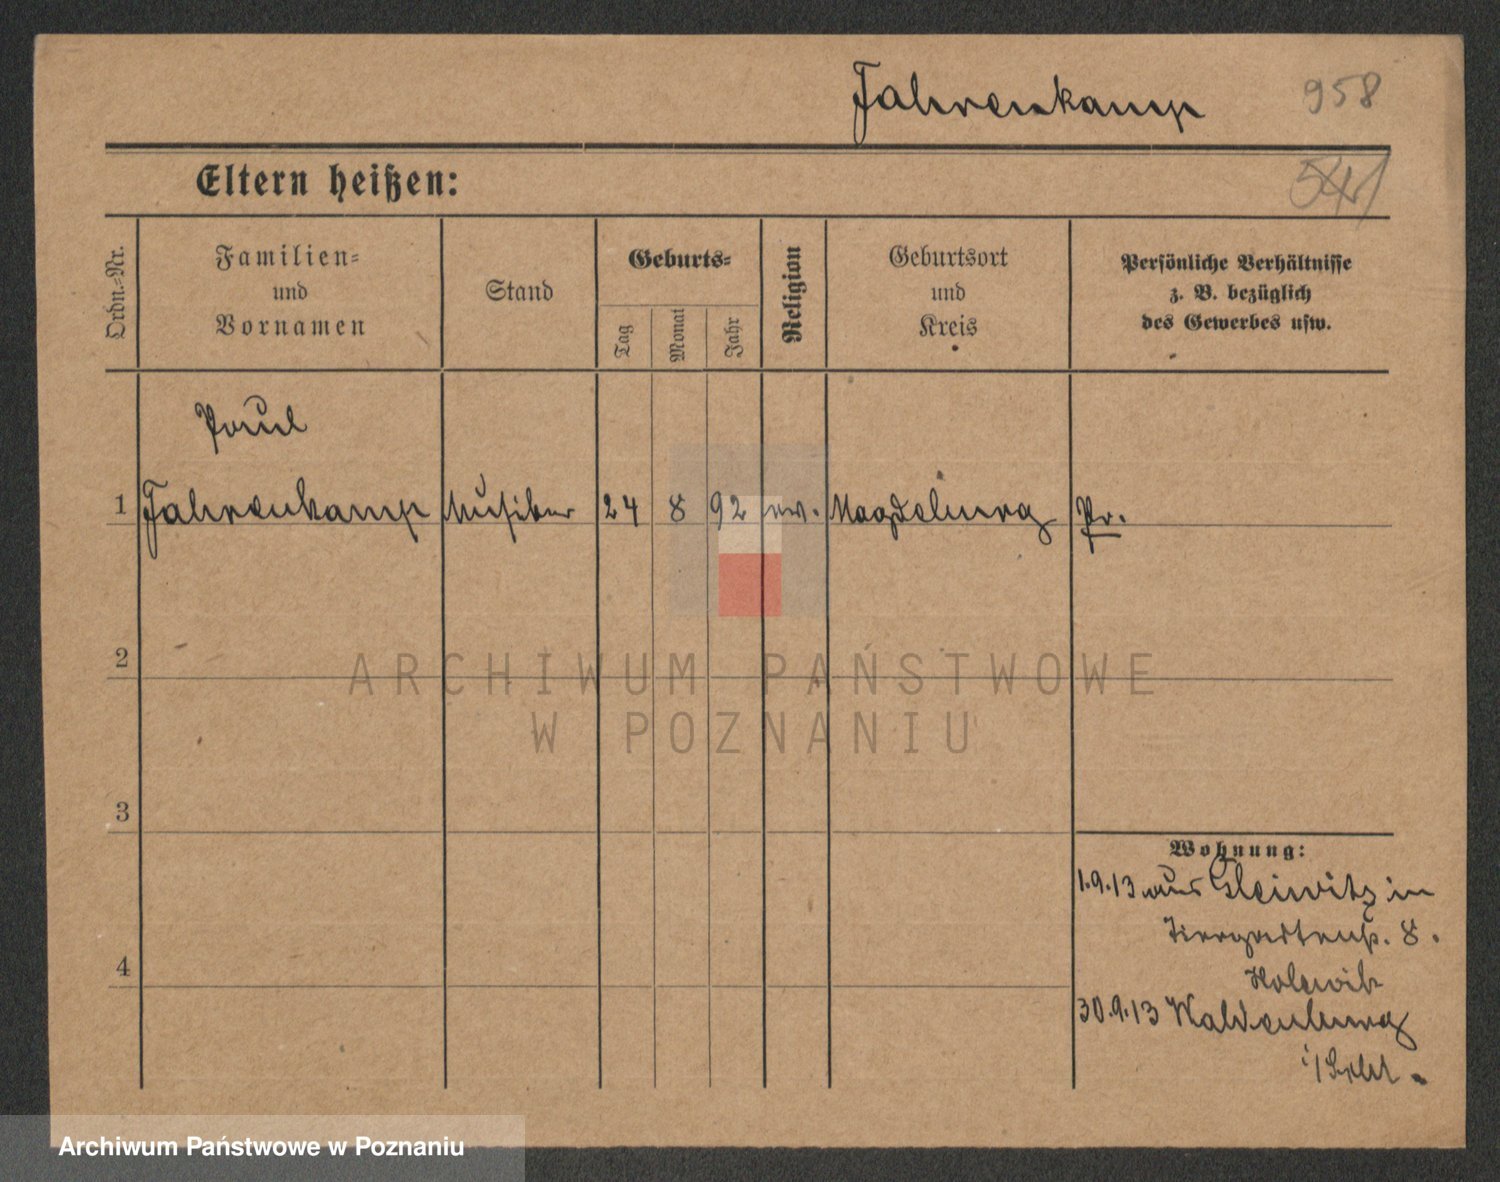 Fahrenkamp 958
541
Eltern heißen:
Ordn.-Nr.
Familien-
und
Vornamen
Stand
Geburts-
Tag
Monat
Jahr
Religion
Geburtsort
und
Kreis
Persönliche Verhältnisse
z. B. bezüglich
des Gewerbes usw.
Paul
1 Fahrenkamp Musiker 24 8 92 ev. Magdeburg Pr.
2
3
4
Wohnung:
1.9.13 aus Gleiwitz in
Tiergartenstr. 8.
30.9.13 Waldenburg
i/Schl.
ARCHIWUM PAŃSTWOWE
W POZNANIU
Archiwum Państwowe w Poznaniu